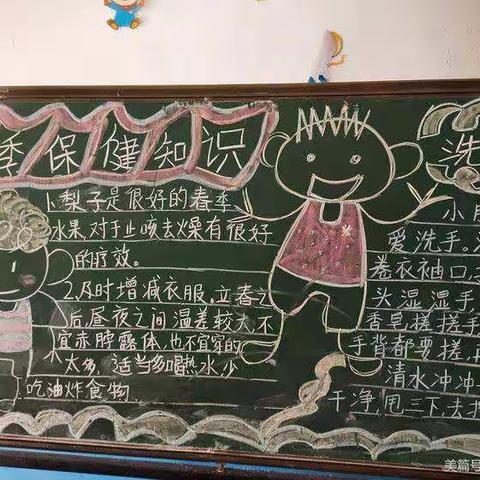 季保健知识
1、梨子是很好的春季
水果对于止咳去燥有很好
的疗效。
2.及时增减衣服,立春之
后,昼夜之间温差较大,不
宜赤脖露体,也不宜穿的
太多,适当多喝热水,少
吃油炸食物.
洗
小
爱洗手。
卷衣袖口,
头湿湿手
香皂,搓搓手
手背都要搓,
清水冲冲
干净,甩三下,去
美篇号